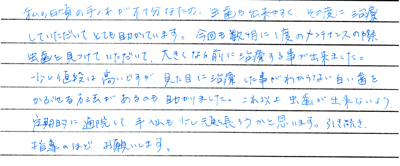 私の日頃の手入れが不十分なため、虫歯も出来やすく、その度に治療
していただいてとても助かっています。今回も数ヶ月に1度のメンテナンスの際
虫歯を見つけていただいて、大きくなる前に治療する事が出来ました。
少し値段は高いですが、見た目に治療した事がわからない白い歯を
かぶせる方法があるのも助かりました。これ以上虫歯が出来ないよう
定期的に通院して手入れも少し頑張ろうかと思います。引き続き
指導のほどお願いします。